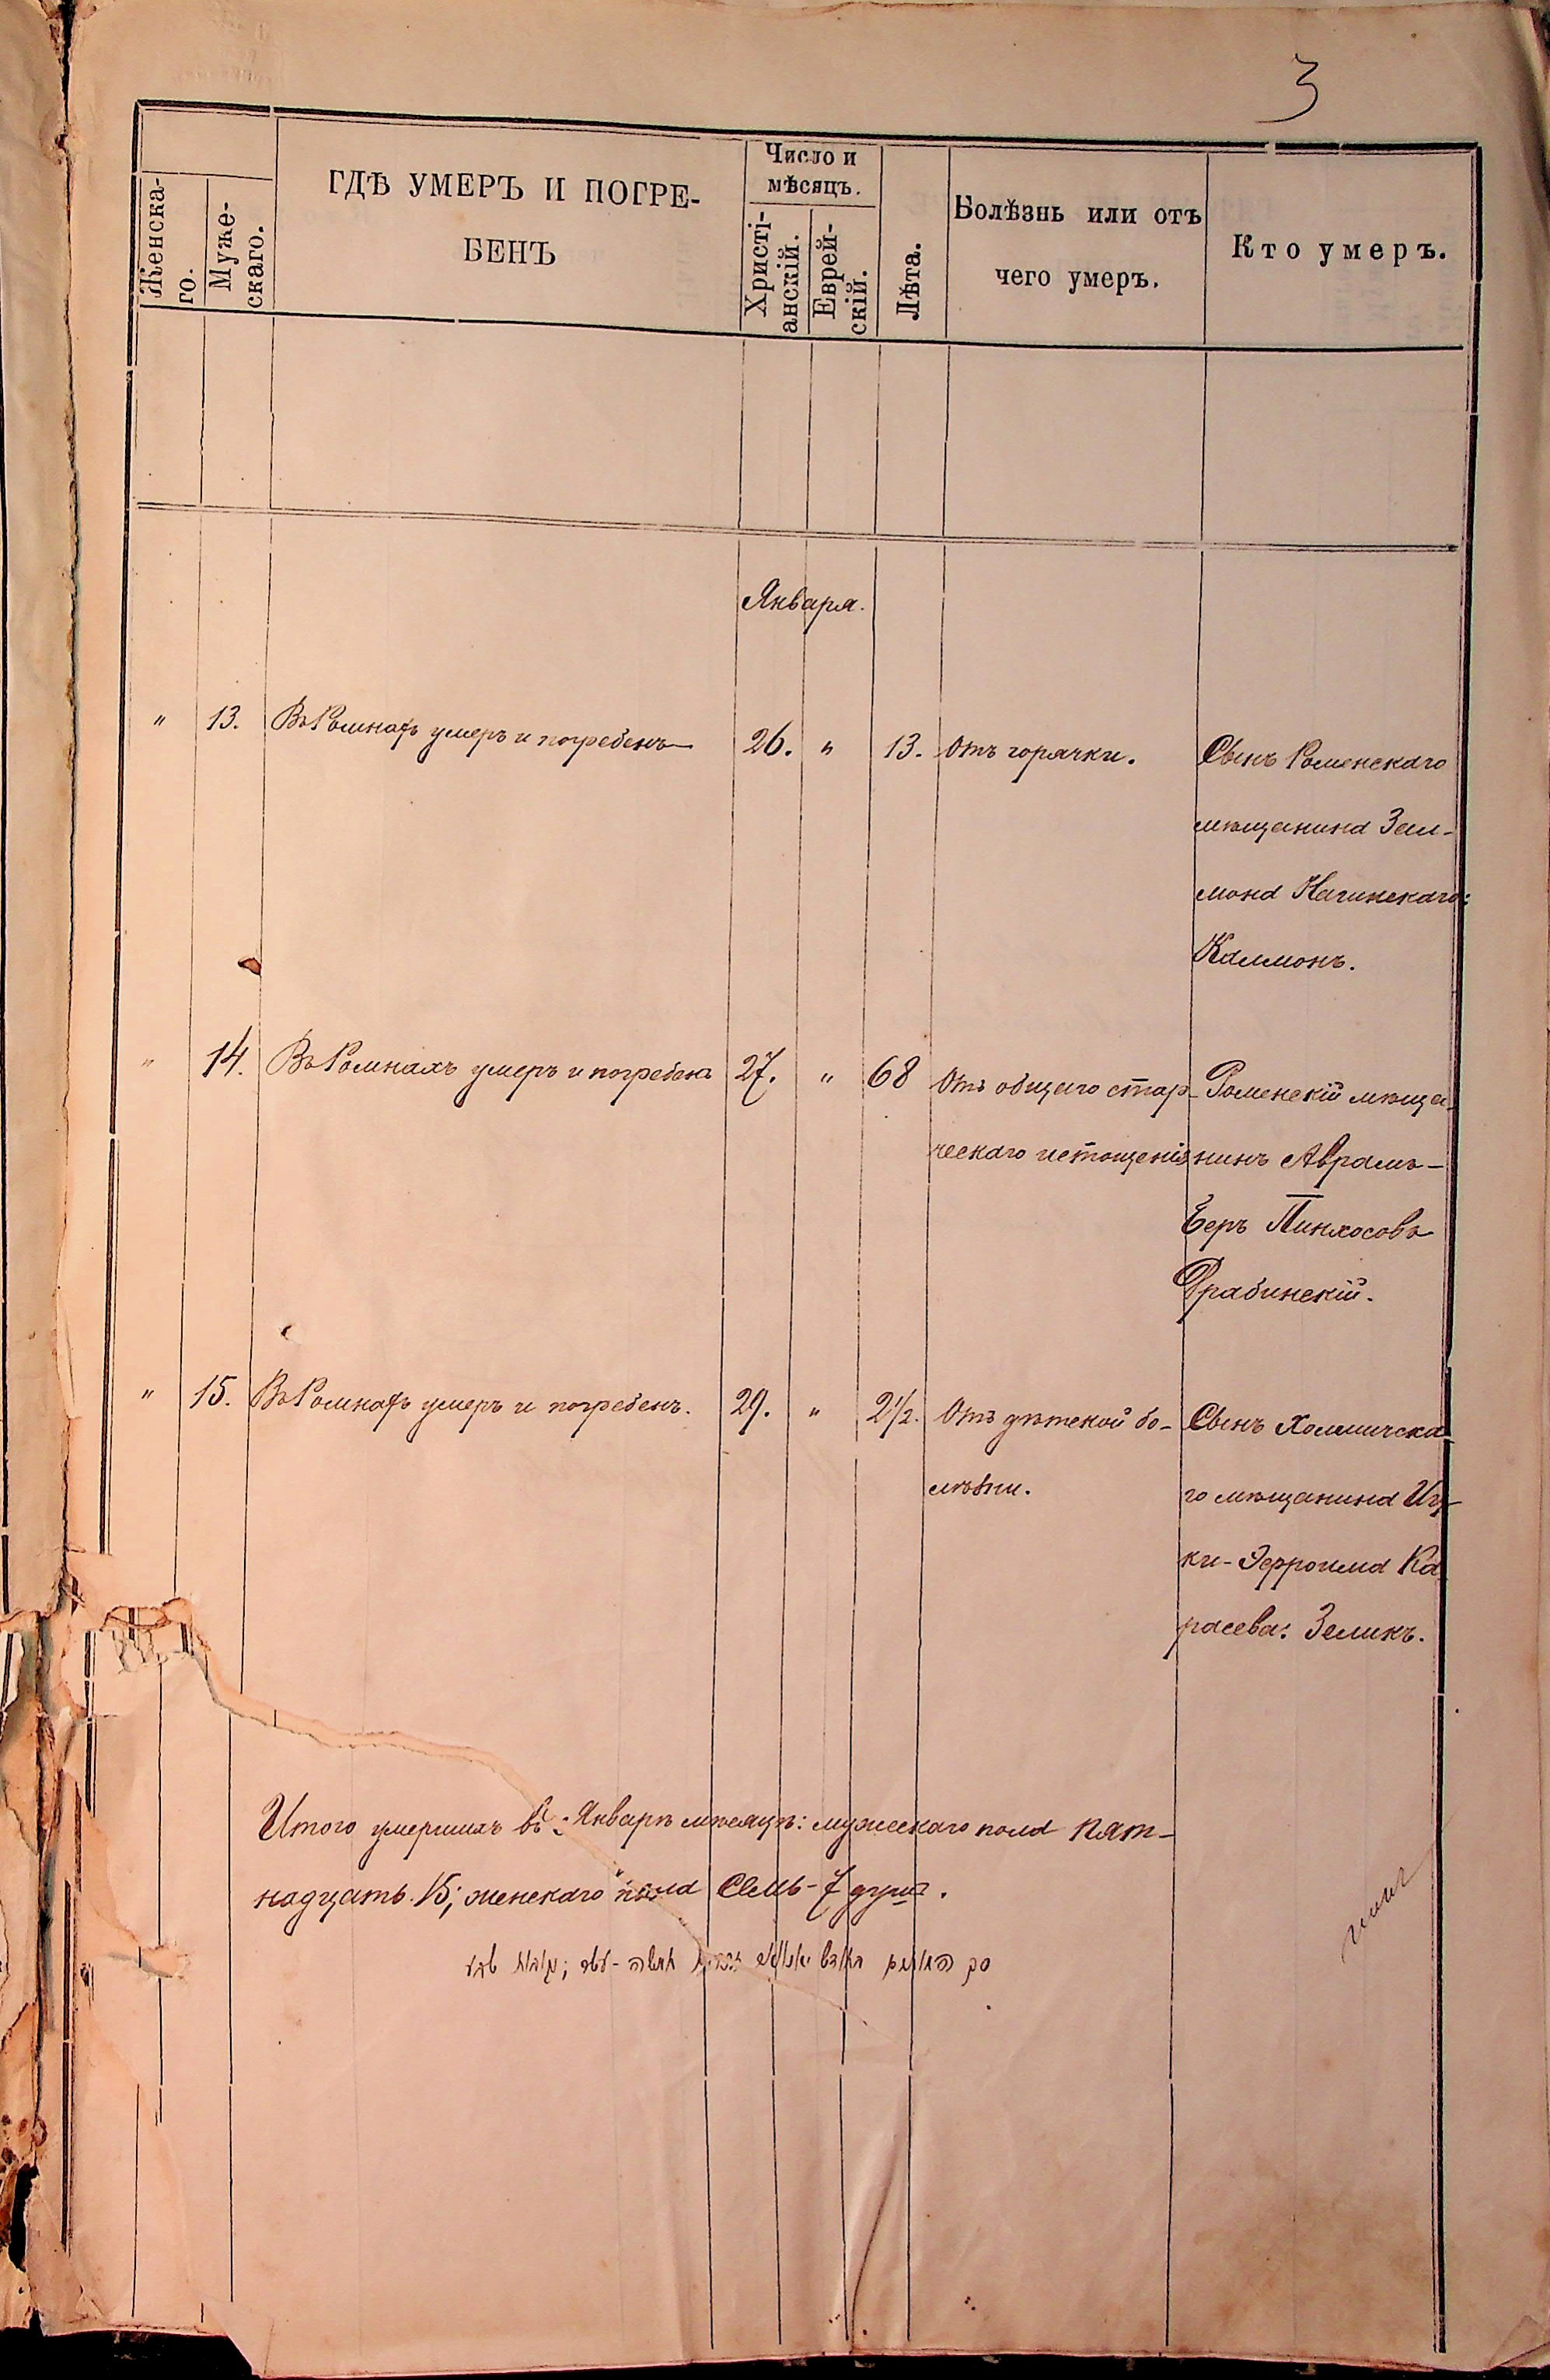 3
Женска-
го.
Муже-
скаго.
ГДѢ УМЕРЪ И ПОГРЕ-
БЕНЪ
Число и
мѣсяцъ.
Христі-
анскій.
Еврей-
скій.
Лѣта.
Болѣзнь или отъ
чего умеръ.
Кто умеръ.
Января.
" 13. Въ Ромнахъ умеръ и погребенъ 26. " 13. Отъ горячки. Сынъ Роменскаго
мѣщанина Зал-
мона Нагинскаго:
Калмонъ.
" 14. Въ Ромнахъ умеръ и погребенъ 27. " 68 Отъ общаго стар- Роменскій мѣща-
ческаго истощенія нинъ Аврамъ-
Беръ Пинхосовъ
Грабинскій.
" 15. Въ Ромнахъ умеръ и погребенъ. 29. " 2½. Отъ дѣтской бо- Сынъ Холмичска-
лѣзни. го мѣщанина Иц-
ки-Эфроима Ка
расева: Зеликъ.
Итого умершихъ въ: Январѣ мѣсяцѣ: мужескаго пола пят-
надцать 15; женскаго пола семь-7 душъ.